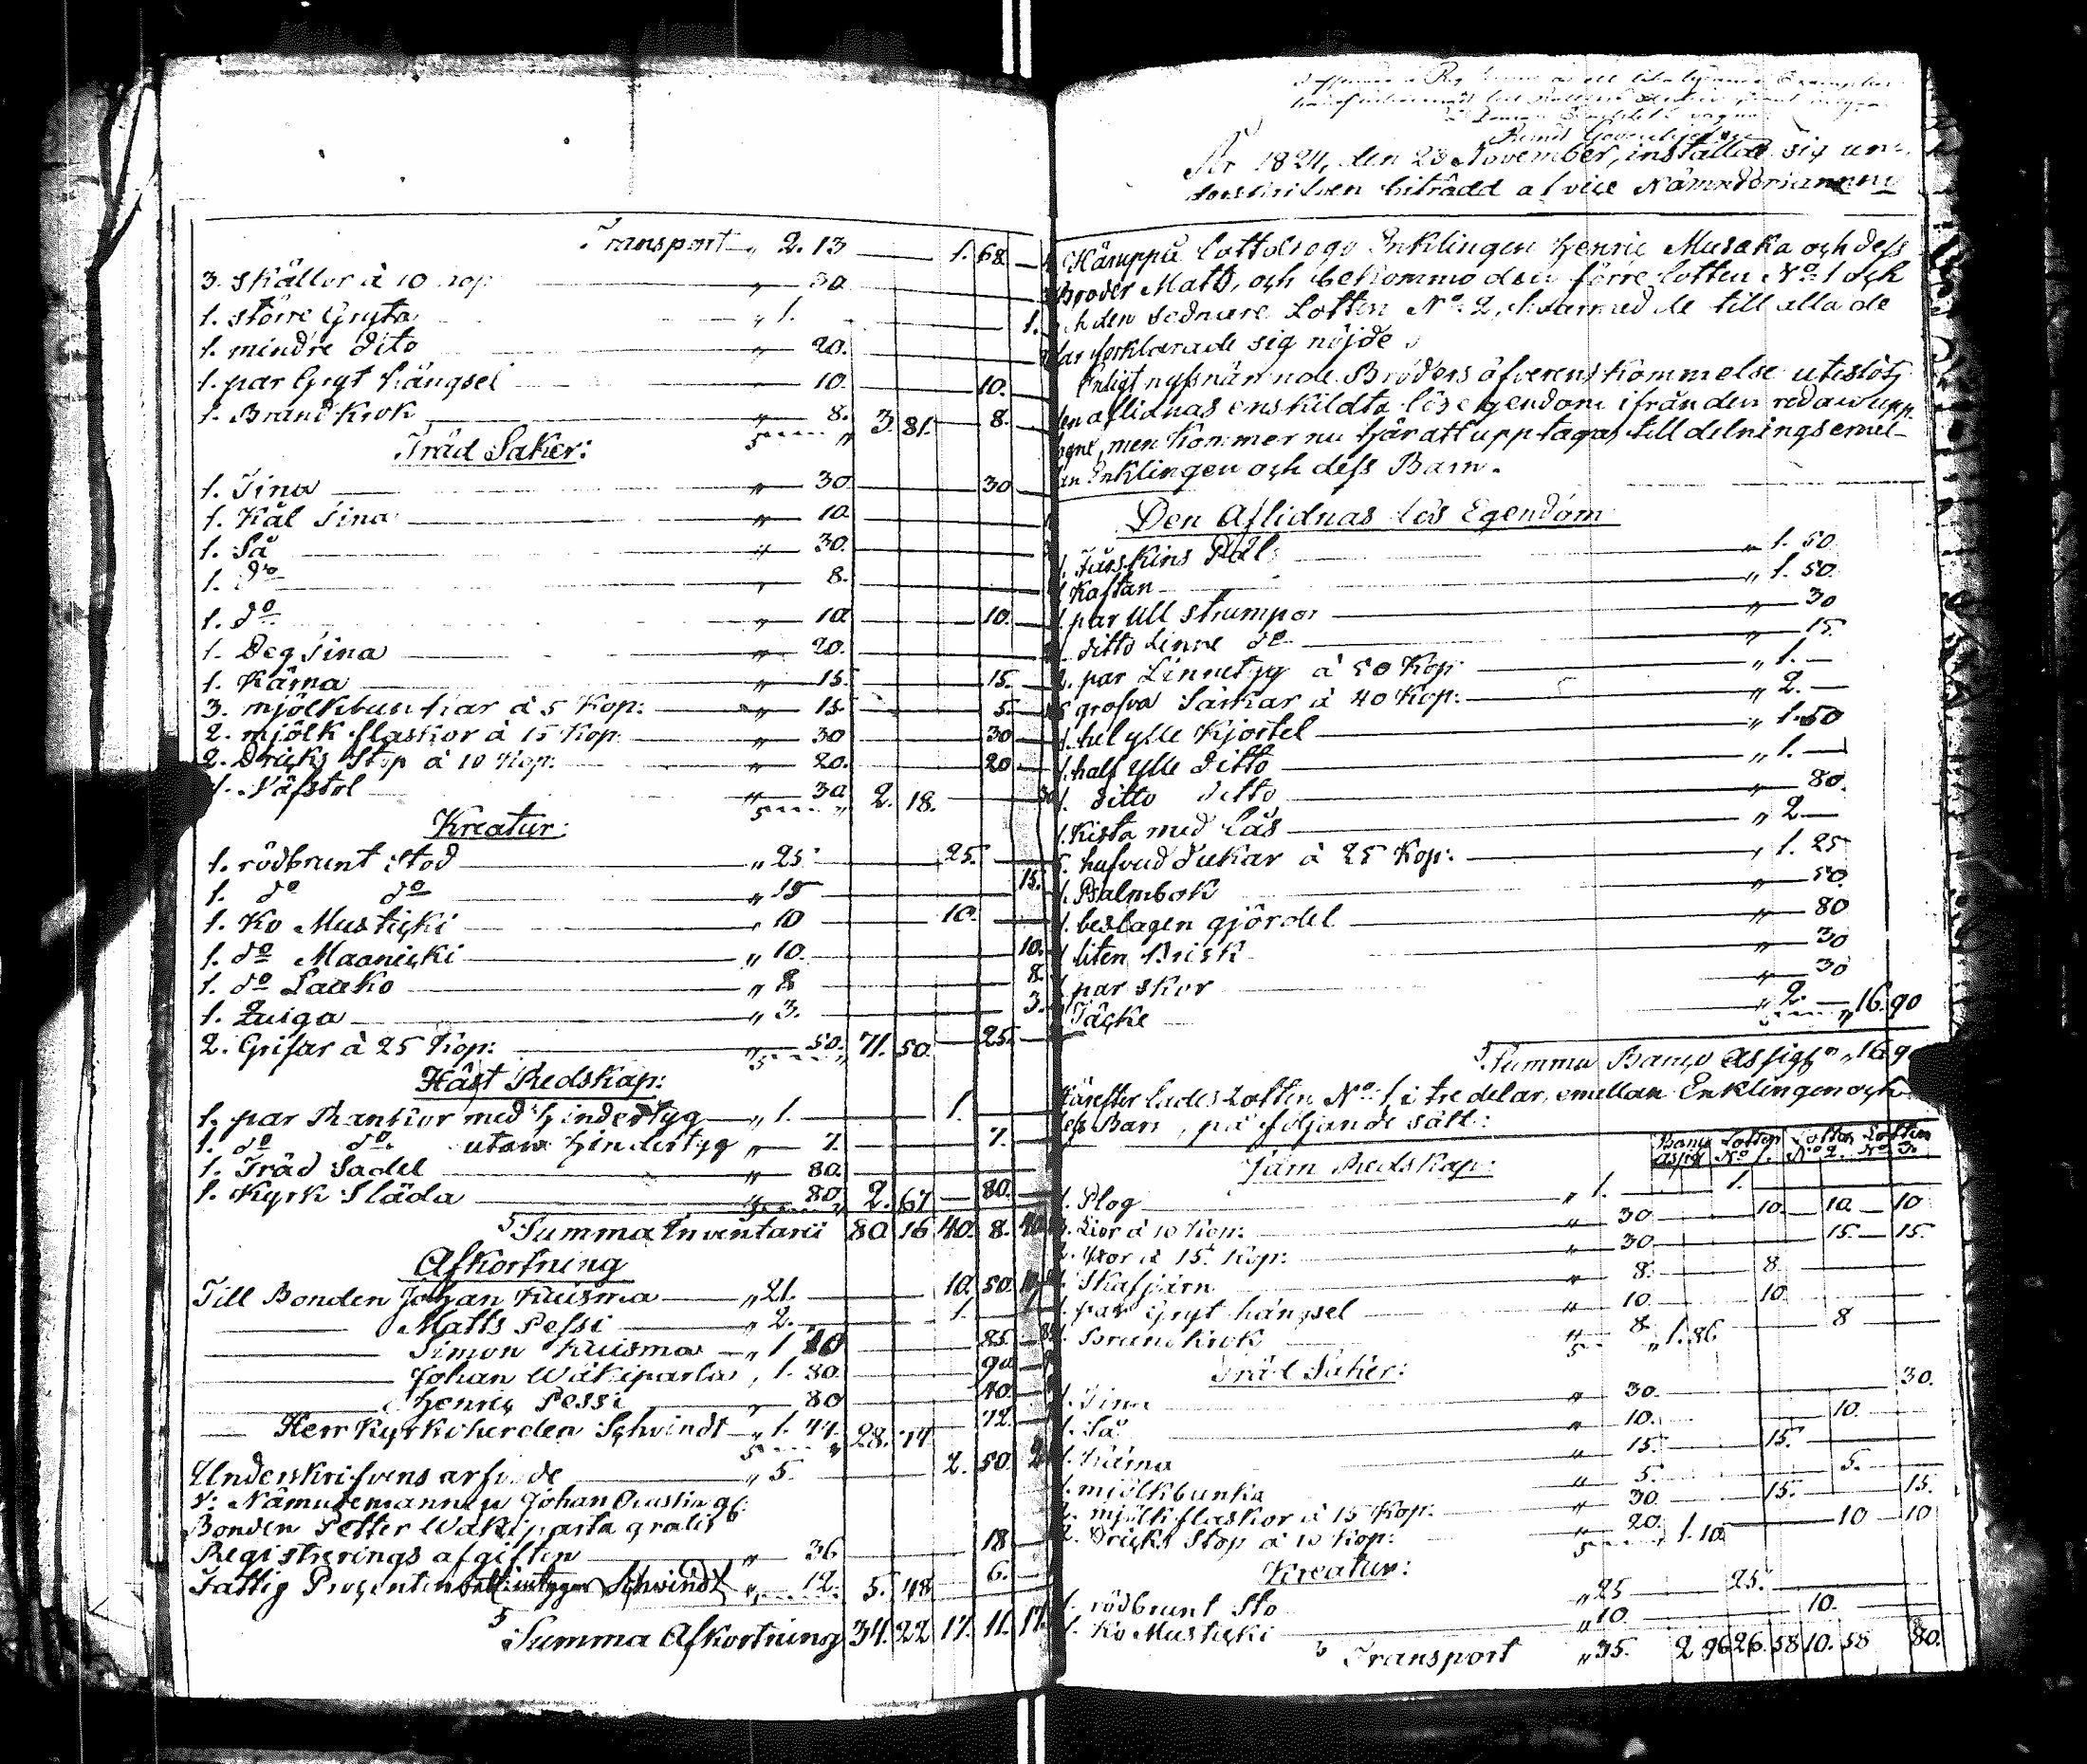 Transport „ 2. 13 1. 68
3. Skällor à 10 kop: „ 30
1. större Gryta „ 1. 1.
1. mindre dito „ 20.
1. par Gryt hängsel 10. 10.
1. Brand krok „ 8. 3. 81. 8.
Träd Saker:
1. Tina „ 30 30
1. Kål Tina „ 10
1. Så „ 30.
1. do „ 8.
1. do „ 10 10.
1. Deg Tina „ 20.
1. Kärna „ 15. 15.
3. mjölkbunkar à 5 Kop: „ 15 5.
2. mjölk flaskor à 15 Kop „ 30 30
2. Dricks Stop à 10 Kop: „ 20. 20
1. Väfstol „ 30 2. 18.
Kreatur:
1. rödbrunt Stod „ 25 25.
1. do do „ 15 15.
1. Ko Musticki „ 10 10.
1. do Maanicki „ 10. 10.
1. do Laako „ 8 8.
1. Quiga „ 3. 3.
2. Grisar à 25 Kop: 50. 71. 50. 25.
Häst Redskap:
1. par Rankor med hindertyg „ 1. 1.
1. do do utan hindertyg „ 7. 7.
1. Träd Sadel „ 80.
1. Kyrk Släda „ 80 2. 67 80.
Summa Inventarii 80 16 40. 8. 40
Afkortning
Till Bonden Johan Kuisma „ 21. 10. 50.
Matts Pessi „ 2. 1.
Simon Kuisma „ 1 70 85.
Johan Wäkiparta „ 1. 80. 90
Henric Pessi „ 80 40.
Herr Kyrkoherden Schvindt „ 1. 44. 28. 74 72.
Underskrifvens arfvode „ 5. 2. 50.
V: Nämndemannen Johan
Bonden Petter Wäkiparta gratis
Registrerings afgiften „ 36 18
Fattig Procenten Schvindt „ 12. 5. 48 6.
Summa Afkortning 34. 22 17. 11. 17.
År 1824, den 23 November, inställde sig un-
derskrifven biträdd af vice Nämndemannen
Häruppå lottades ego Enklingen Henric Musaka och dess
Broder Matts, och bekommo den förre lotten No 1 och
den sednare Lotten No 2, hvarmed de till alla de
lar förklarade sig nöjde.
Enligt nyssnämnde Bröders öfverenskommelse uteslöts
den aflidnas enskildta lösegendom ifrån den redan upp
tagne, men kommer nu här att upptagas till delnings emel-
lan Enklingen och dess Barn.
Den Aflidnas lös Egendom
1. Fårskins Päls „ 1. 50.
1. Kaftan „ 1. 50
1. par Ull strumpor „ 30
1. ditto Linne do „ 15.
2. par Linnetyg à 50 Kop: „ 1.
5 grofva Särkar à 40 Kop: „ 2.
1. hel ylle Kjortel „ 1. 50
1. half ylle ditto „ 1.
1. ditto ditto „ 80.
1. Kista med lås „ 2
5. hufvud dukar à 25 Kop: „ 1. 25
1. Psalmbok „ 50.
1. beslagen gjördel „ 80
1. liten Brisk „ 30
1. par skor „ 30
1. Täcke „ 2. 16. 90
Summa Banco Assign „ 16. 90
Härefter lades Lotten No 1, i tre delar, emellan Enklingen och
dess Barn, på följande sätt:
Banco Assig Lotten No 1. Lotten No 2. Lotten No 3.
Järn Redskap:
1. Plog „ 1. 1.
3. Lior à 10 Kop: „ 30 10. 10. 10
2. Yxor à 15 Kop: „ 30 15. 15.
1. Skafjärn „ 8. 8.
1. par Gryt hängsel „ 10. 10.
1. Brandkrok „ 8 1. 86 8
Träd Saker:
1. Tina „ 30. 30.
1. Så „ 10. 10.
1. Kärna „ 15. 15.
1. mjölkbunka „ 5. 5.
2. mjölk flaskor à 15 Kop: „ 30. 15. 15.
2. Dricks Stop à 10 Kop: „ 20 1. 10. 10 10
Kreatur:
1. rödbrunt Sto „ 25 25.
1. Ko Mustički „ 10. 10.
Transport „ 35. 2 96 26. 58 10. 58 80.